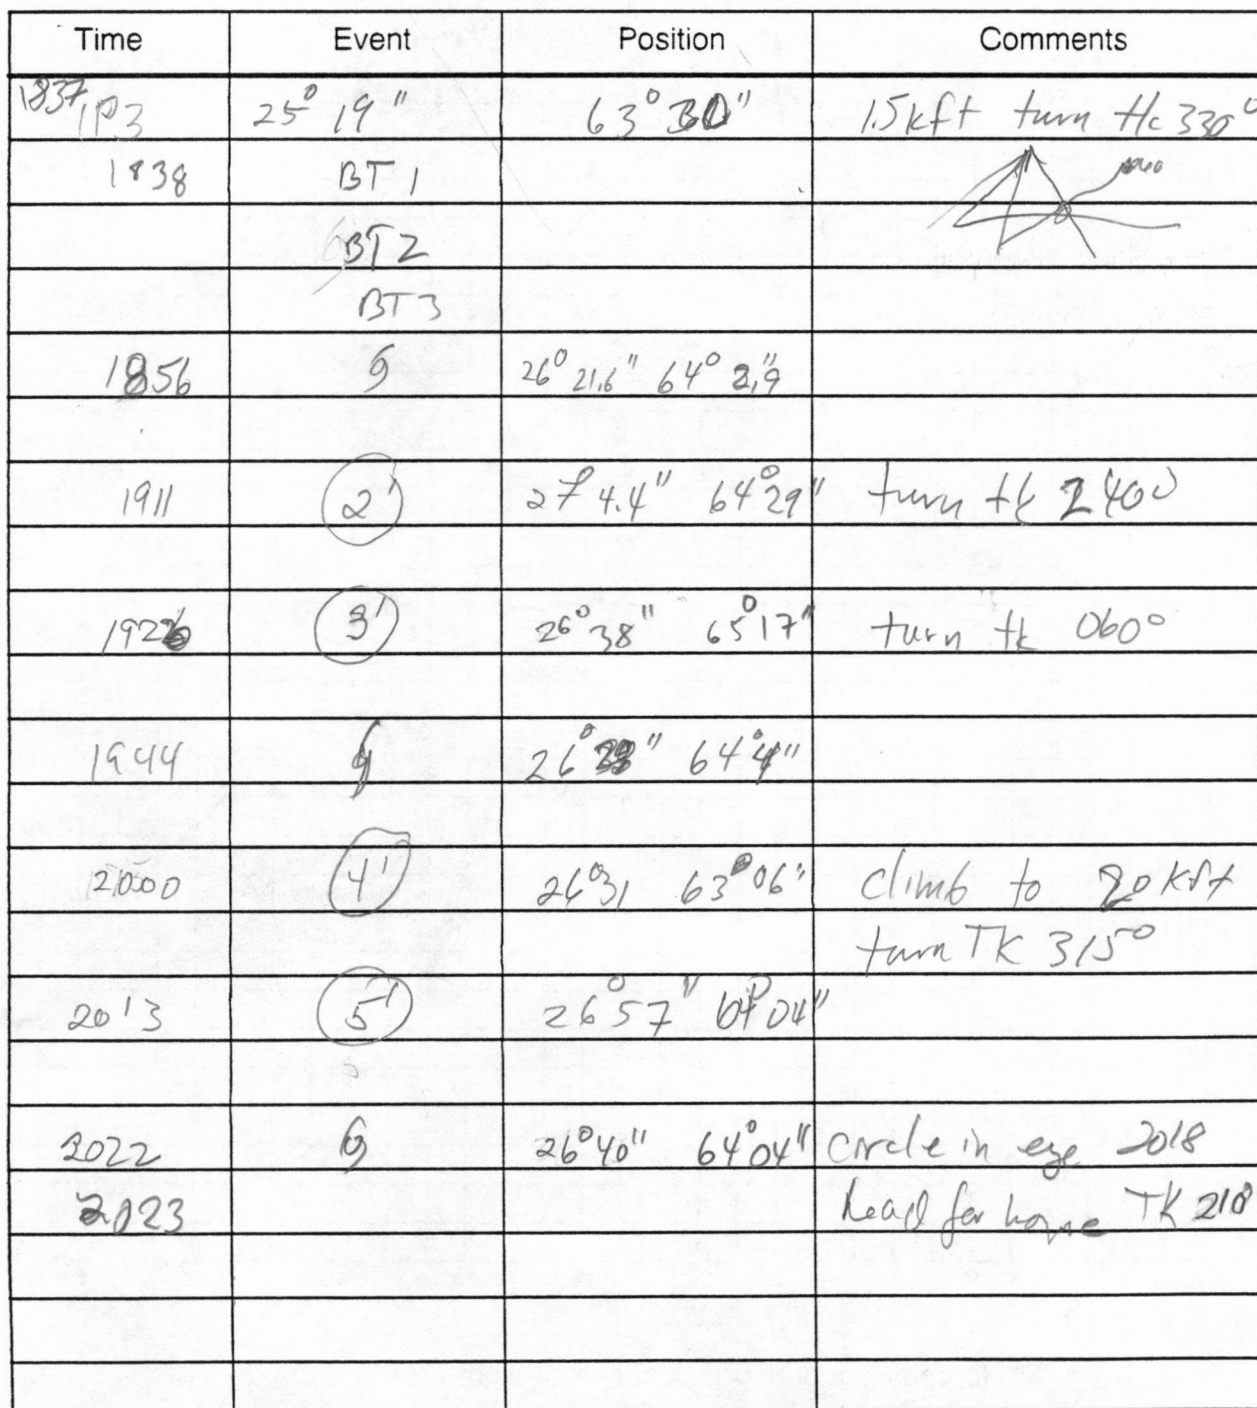 Time Event Position Comments
1837 IP3 25° 19" 63° 30" 1.5kft turn tk 330°
1838 BT 1
BT2
BT3
1856 26° 21.6" 64° 2.9"
1911 2' 27° 4.4" 64° 29" turn tk 240°
1926 3' 26° 38" 65° 17" turn tk 060°
1944 26° 64° 4"
2000 4' 26° 31 63° 06" climb to 20 kft
turn TK 315°
2013 5' 26° 57" 64° 04"
2022 26° 40" 64° 04" circle in eye 2018
2023 head for home TK 210